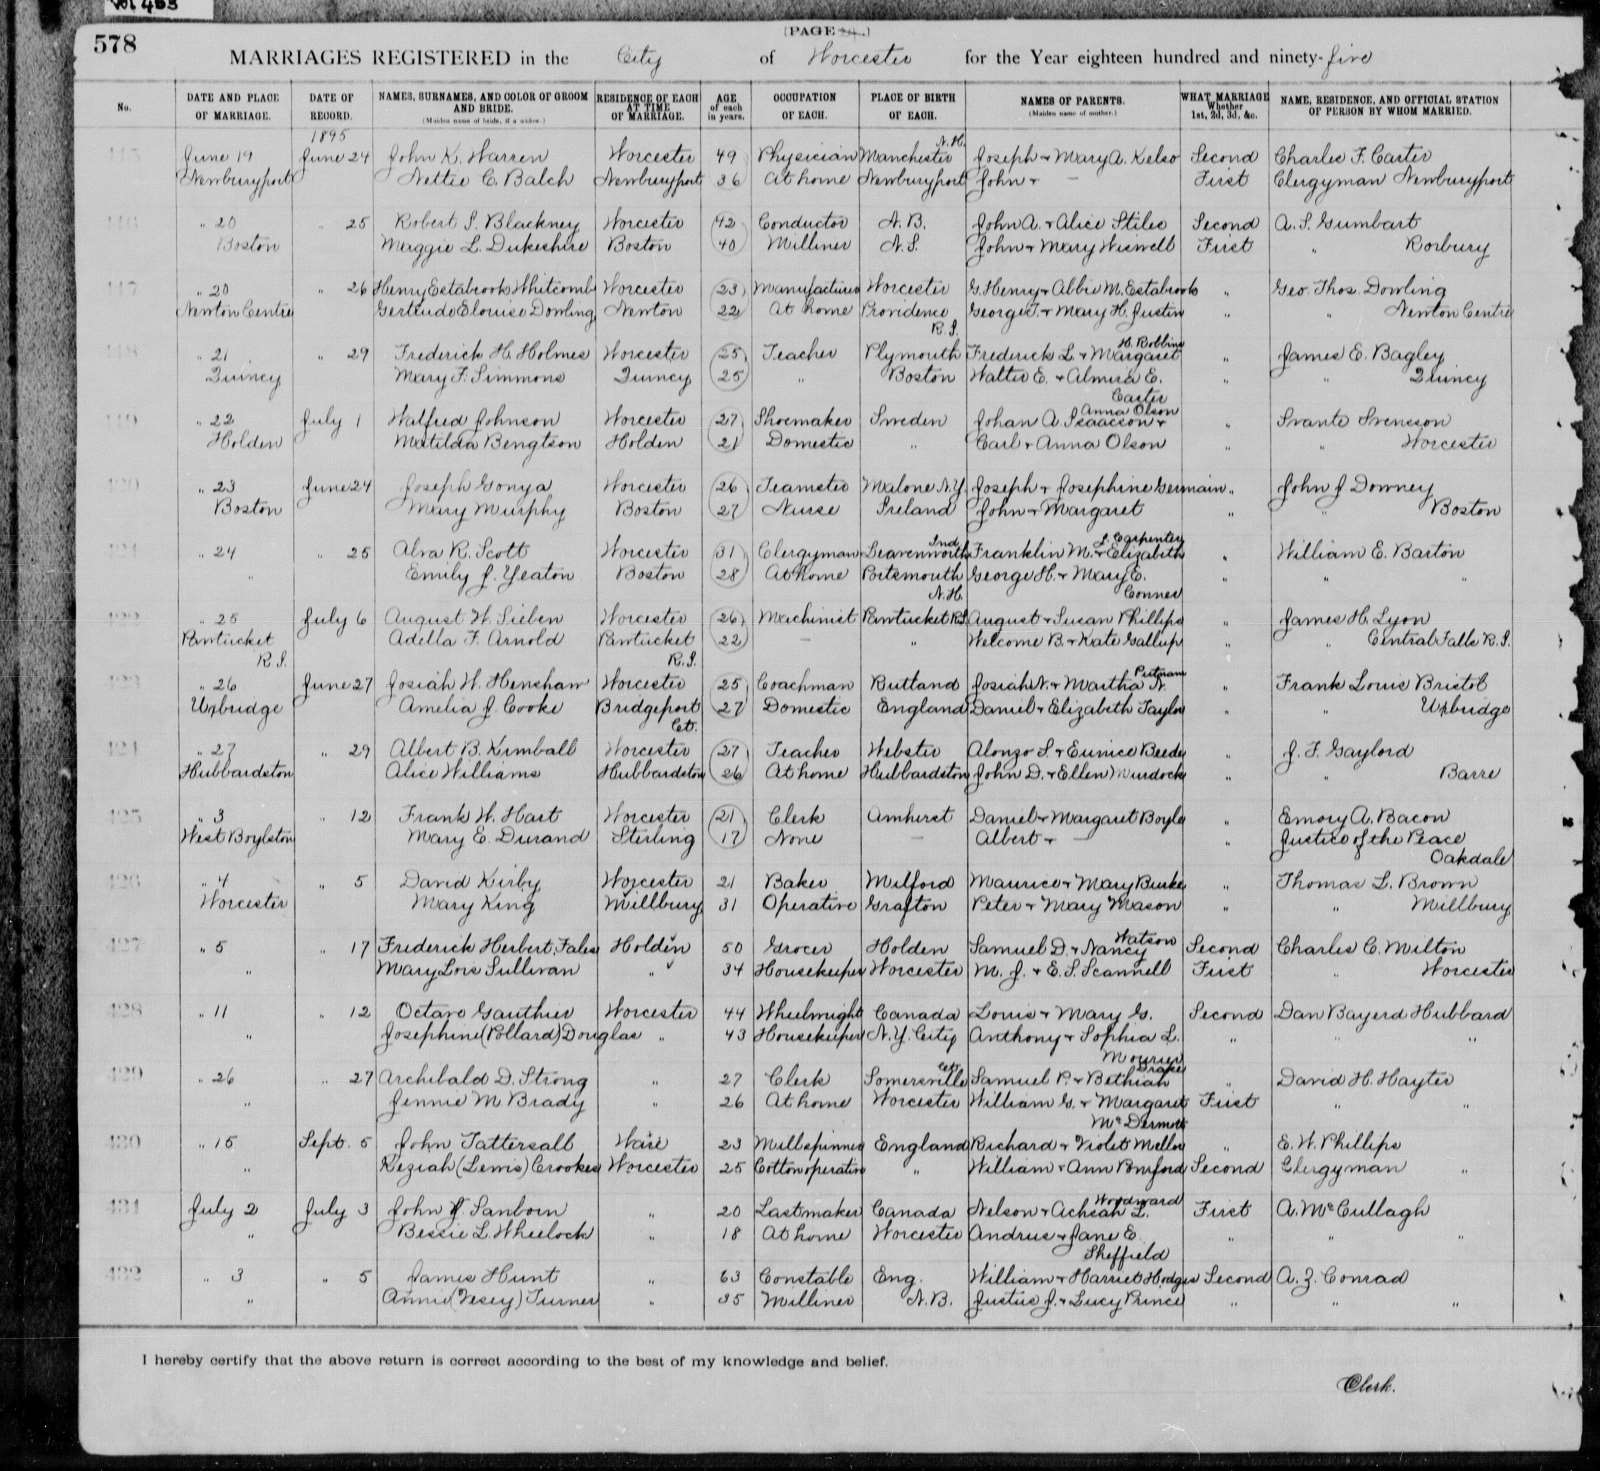 Vol 453
578
[PAGE .]
MARRIAGES REGISTERED in the City of Worcester for the Year eighteen hundred and ninety-five
No. DATE AND PLACE OF MARRIAGE. DATE OF RECORD. NAMES, SURNAMES, AND COLOR OF GROOM AND BRIDE. (Maiden name of bride, if a widow.) RESIDENCE OF EACH AT TIME OF MARRIAGE. AGE of each in years. OCCUPATION OF EACH. PLACE OF BIRTH OF EACH. NAMES OF PARENTS. (Maiden name of mother.) WHAT MARRIAGE Whether 1st, 2d, 3d, &c. NAME, RESIDENCE, AND OFFICIAL STATION OF PERSON BY WHOM MARRIED.
1895
415 June 19 June 24 John K. Warren Worcester 49 Physician Manchester N.H. Joseph + Mary A. Kelso Second Charles F. Carter
Newburyport Nettie C. Balch Newburyport 36 At home Newburyport John + — First Clergyman Newburyport
416 " 20 " 25 Robert S. Blackney Worcester 42 Conductor N.B. John A. + Alice Stiles Second A. S. Gumbart
Boston Maggie L. Dukeshire Boston 40 Milliner N.S. John + Mary Wiswell First " Roxbury
417 " 20 " 26 Henry Estabrook Whitcomb Worcester 23 Manufacturer Worcester G. Henry + Abbie M. Estabrook " Geo. Thos. Dowling
Newton Centre Gertrude Elouise Dowling Newton 22 At home Providence R.I. George T. + Mary H. Justin " " Newton Centre
418 " 21 " 29 Frederick H. Holmes Worcester 25 Teacher Plymouth Frederick L. + Margaret H. Robbins " James E. Bagley
Quincy Mary F. Simmons Quincy 25 " Boston Walter E. + Almira E. Carter " " Quincy
419 " 22 July 1 Walfred Johnson Worcester 27 Shoemaker Sweden Johan A. Isaacson + Anna Olson " Svante Svenson
Holden Matilda Bengtson Holden 21 Domestic " Carl + Anna Olson " " Worcester
420 " 23 June 24 Joseph Gonya Worcester 26 Teamster Malone N.Y. Joseph + Josephine Germain " John J Downey
Boston Mary Murphy Boston 27 Nurse Ireland John + Margaret " " Boston
421 " 24 " 25 Alva R. Scott Worcester 31 Clergyman Leavenworth Ind Franklin M. + Elizabeth J. Carpenter " William E. Barton
" Emily J. Yeaton Boston 28 At home Portsmouth N.H. George H. + Mary E. Conner " " "
422 " 25 July 6 August W. Sieben Worcester 26 Machinist Pawtucket R.I. August + Susan Phillips " James H. Lyon
Pawtucket R.I. Adella F. Arnold Pawtucket R.I. 22 — " Welcome B. + Kate Gallup " " Central Falls R.I.
423 " 26 June 27 Josiah W. Henshaw Worcester 25 Coachman Rutland Josiah N. + Martha N. Putnam " Frank Louis Bristol
Uxbridge Amelia J. Cooke Bridgeport Ct. 27 Domestic England Daniel + Elizabeth Taylor " " Uxbridge
424 " 27 " 29 Albert B. Kimball Worcester 27 Teacher Webster Alonzo S. + Eunice Beede " J. F. Gaylord
Hubbardston Alice Williams Hubbardston 26 At home Hubbardston John D. + Ellen Murdock " " Barre
425 " 3 " 12 Frank W. Hart Worcester 21 Clerk Amherst Daniel + Margaret Boyle " Emory A. Bacon
West Boylston Mary E. Durand Sterling 17 None — Albert + — " Justice of the Peace Oakdale
426 " 4 " 5 David Kirby Worcester 21 Baker Milford Maurice + Mary Burke " Thomas L. Brown
Worcester Mary King Millbury 31 Operative Grafton Peter + Mary Mason " " Millbury
427 " 5 " 17 Frederick Herbert Fales Holden 50 Grocer Holden Samuel D. + Nancy Watson Second Charles C. Milton
" Mary Lois Sullivan " 34 Housekeeper Worcester M. J. + E. S. Scannell First " Worcester
428 " 11 " 12 Octave Gauthier Worcester 44 Wheelwright Canada Louis + Mary G. Second Dan Bayerd Hubbard
" Josephine (Pollard) Douglas " 43 Housekeeper N.Y. City Anthony + Sophia L. Mourier " " "
429 " 26 " 27 Archibald D. Strong " 27 Clerk Somersville Ct. Samuel P. + Bethiah Drake " David H. Hayter
" Jennie M Brady " 26 At home Worcester William G. + Margaret McDermott First " "
430 " 15 Sept. 5 John Tattersall Ware 23 Mill spinner England Richard + Violet Mellor " E. W. Phillips
" Keziah (Lewis) Crookes Worcester 25 Cotton operative " William + Ann Pomford Second Clergyman "
431 July 2 July 3 John Sanborn " 20 Lastmaker Canada Nelson + Achsah L. Woodward First A. McCullagh
" Bessie L. Wheelock " 18 At home Worcester Andrus + Jane E. Sheffield " " "
432 " 3 " 5 James Hunt " 63 Constable Eng. William + Harriet Hodges Second A. Z. Conrad
" Annie (Vesey) Turner " 35 Milliner N.B. Justus J. + Lucy Prince " " "
I hereby certify that the above return is correct according to the best of my knowledge and belief.
Clerk.